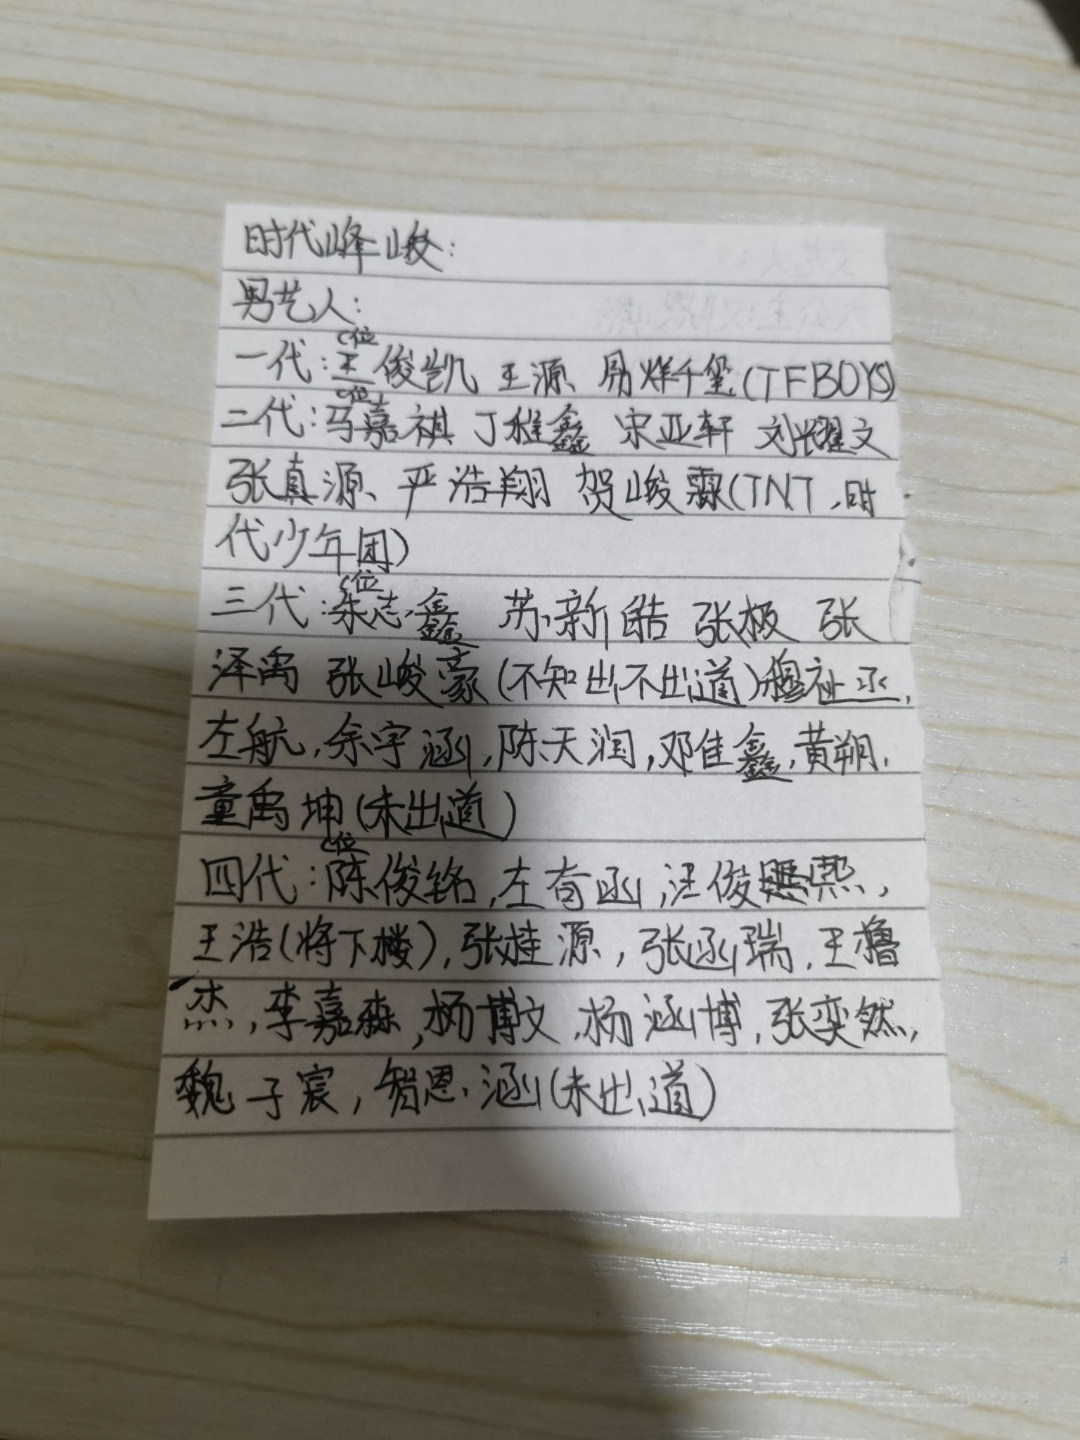 时代峰峻：
男艺人：
C位
一代：王俊凯 王源 易烊千玺(TFBOYS)
C位
二代：马嘉祺 丁程鑫 宋亚轩 刘耀文
张真源 严浩翔 贺峻霖(TNT，时
代少年团)
C位
三代：朱志鑫 苏新皓 张极 张
泽禹 张峻豪(不知出不出道)穆祉丞，
左航，余宇涵，陈天润，邓佳鑫，黄朔，
童禹坤(未出道)
C位
四代：陈俊铭，左奇函，汪俊熙，
王浩(将下楼)，张桂源，张函瑞，王橹
杰，李嘉森，杨博文，杨涵博，张奕然，
魏子宸，智恩涵(未出道)